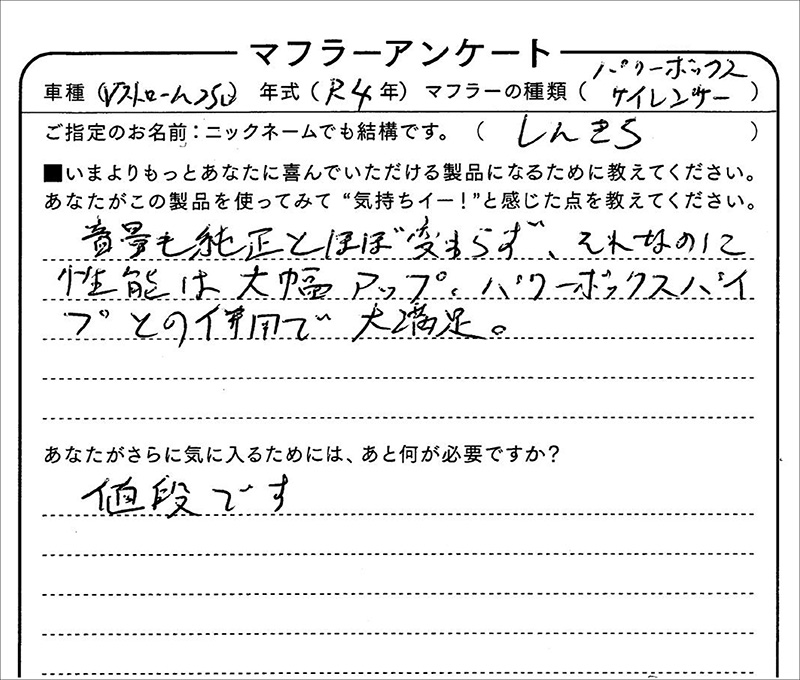 マフラーアンケート
車種(Vストローム250) 年式(R4年) マフラーの種類(パワーボックスサイレンサー)
ご指定のお名前:ニックネームでも結構です。 (しんきち)
■いまよりもっとあなたに喜んでいただける製品になるために教えてください。
あなたがこの製品を使ってみて“気持ちイー!”と感じた点を教えてください。
音量も純正とほぼ変わらず、それなのに
性能は大幅アップ。パワーボックスパイ
プとの併用で大満足。
あなたがさらに気に入るためには、あと何が必要ですか?
値段です